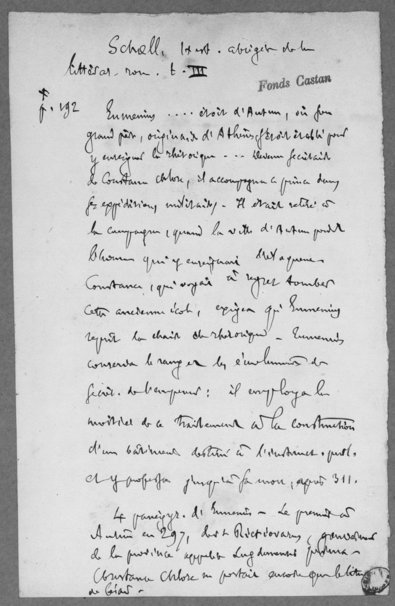 Schœll, Hist. abrégée de la
littérat. rom. t. III
Fonds Castan
p. 192
Eumenius .... étoit d'Autun, où son
grand père, originaire d'Athènes, s'étoit établi pour
y enseigner la rhétorique ... Devenu secrétaire
de Constance Chlore, il accompagna ce prince dans
ses expéditions militaires. Il était retiré à
la campagne, quand la ville d'Autun perdit
l'homme qui y enseignait
Constance, qui voyait à regret tomber
cette ancienne école, exigea qu'Eumenius
reprît la chaire de rhétorique. Eumenius
conserva le rang et les émolumens de
secrét. de l'empereur; il employa la
moitié de ce traitement à la construction
d'un bâtiment destiné à l'instruct. publ.
et y professa jusqu'à sa mort, après 311.
4 panégyr. d'Eumenius - Le premier à
Autun en 297, devant Rictiovarus, gouverneur
de la province appelée Lugdunensis prima -
Constance Chlore ne portait encore que le titre
de César -